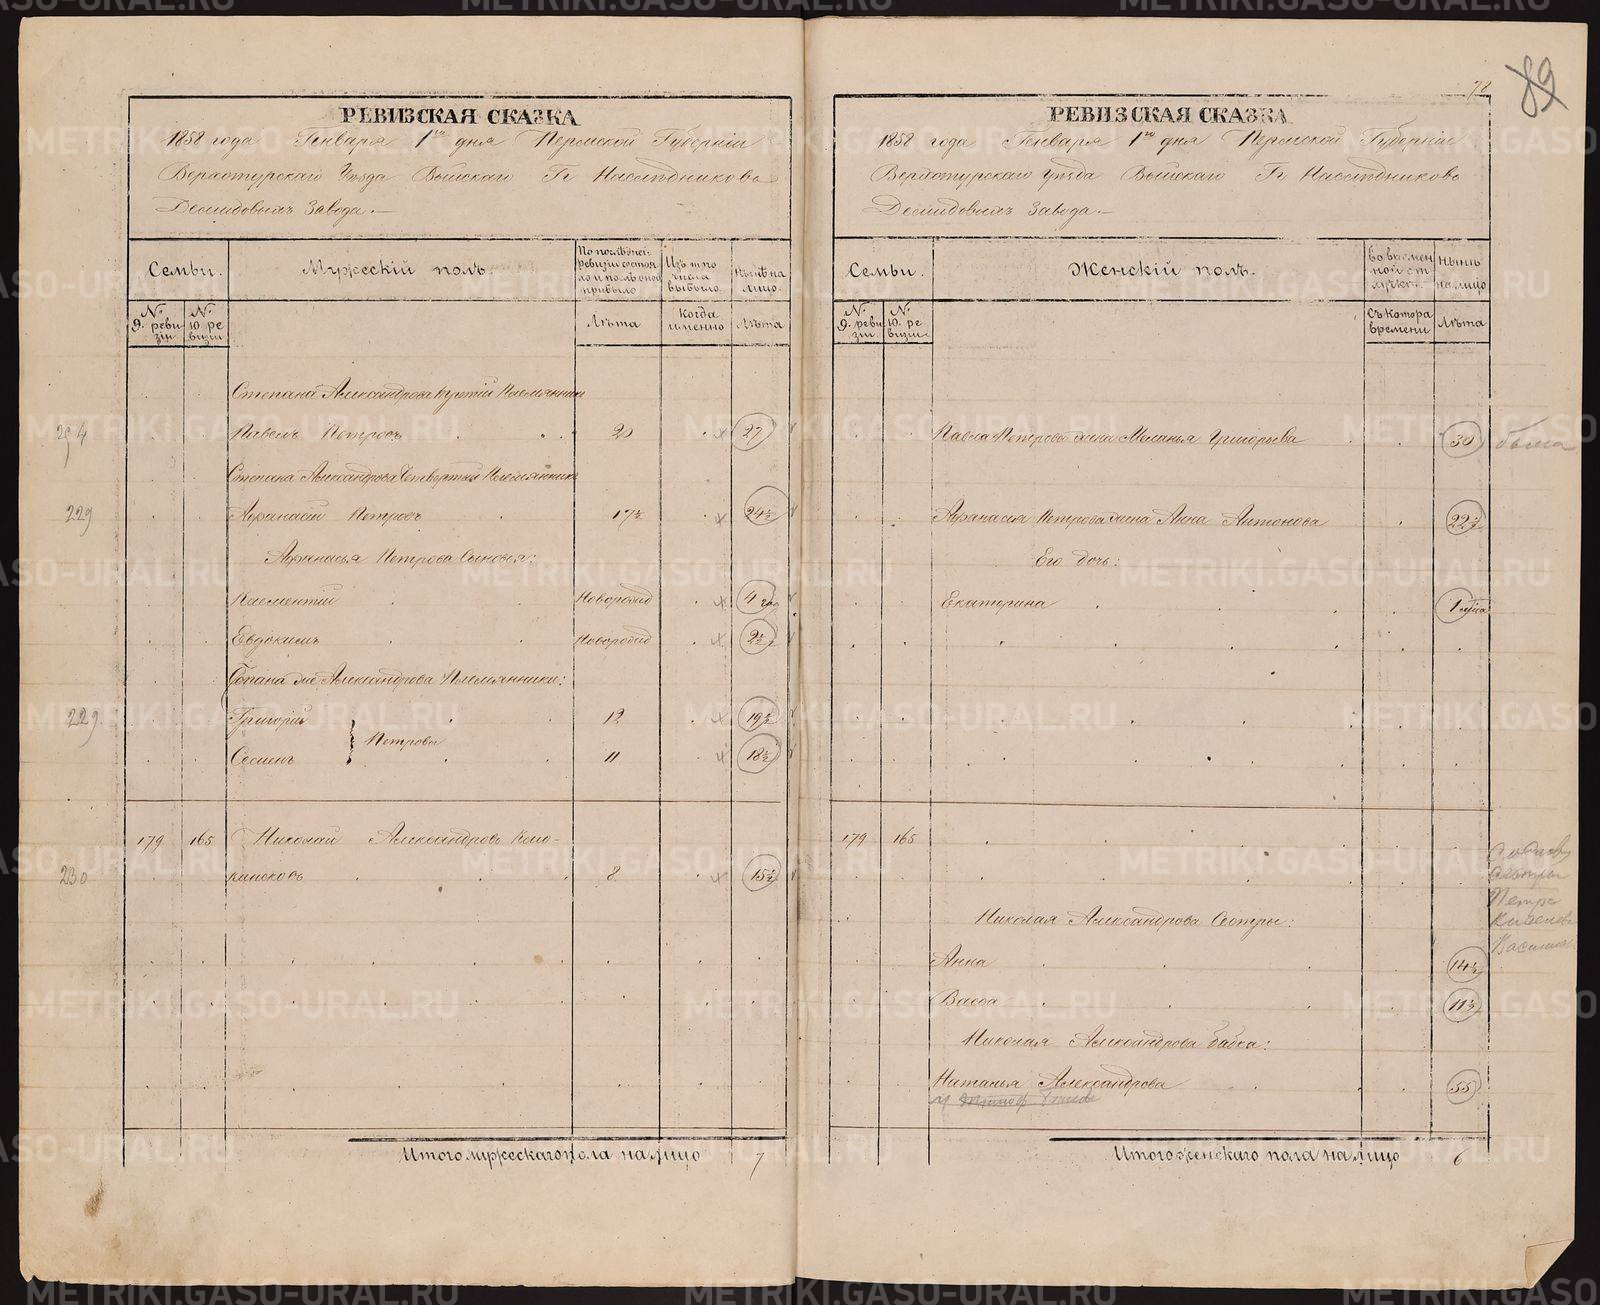 РЕВИЗСКАЯ СКАЗКА
1858 года Генваря 1го дня Пермской Губерніи
Верхотурскаго Уѣзда Выйскаго Гг. Наслѣдниковъ
Демидовыхъ Завода.
Семьи.
Мужескій полъ.
По послѣдней ревизіи состояло и послѣ оной прибыло
Изъ того числа выбыло
Нынѣ на лицо.
№ 9. ревизіи
№ 10 ревизіи
Лѣта
Когда именно
Лѣта
Степана Александрова третій племянникъ
294
Павелъ Петровъ 20 27
Степана Александрова Четвертый племянникъ
229
Афанасій Петровъ 17½ 24½
Афанасья Петрова Сыновья:
Клементій Новорожд 4 год
Евдокимъ Новорожд 2½
Степана же Александрова Племянники:
229
Григорій 12 19½
Петровы
Семенъ 11 18½
179 165 Николай Александровъ Комо-
230
рансковъ 8 15½
Итого мужескаго пола на лицо 7
78
89
РЕВИЗСКАЯ СКАЗКА
1858 года Генваря 1го дня Пермской Губерніи
Верхотурскаго Уѣзда Выйскаго Гг. Наслѣдниковъ
Демидовыхъ Завода.
Семьи.
Женскій полъ.
Во времен ной от лучкѣ.
Нынѣ на лицо
№ 9. ревизіи
№ 10. ревизіи
Съ котора времени
Лѣта
Павла Петрова жена Меланья Григорьева 30
Афанасья Петрова жена Анна Антонова 22½
Его дочь:
Екатерина 1 мѣся
179 165
Николая Александрова Сестры:
Петръ
Анна 14½
Васса 11½
Николая Александрова бабка:
Наталья Александрова 55
Итого женскаго пола на лицо 6
METRIKI.GASO-URAL.RU